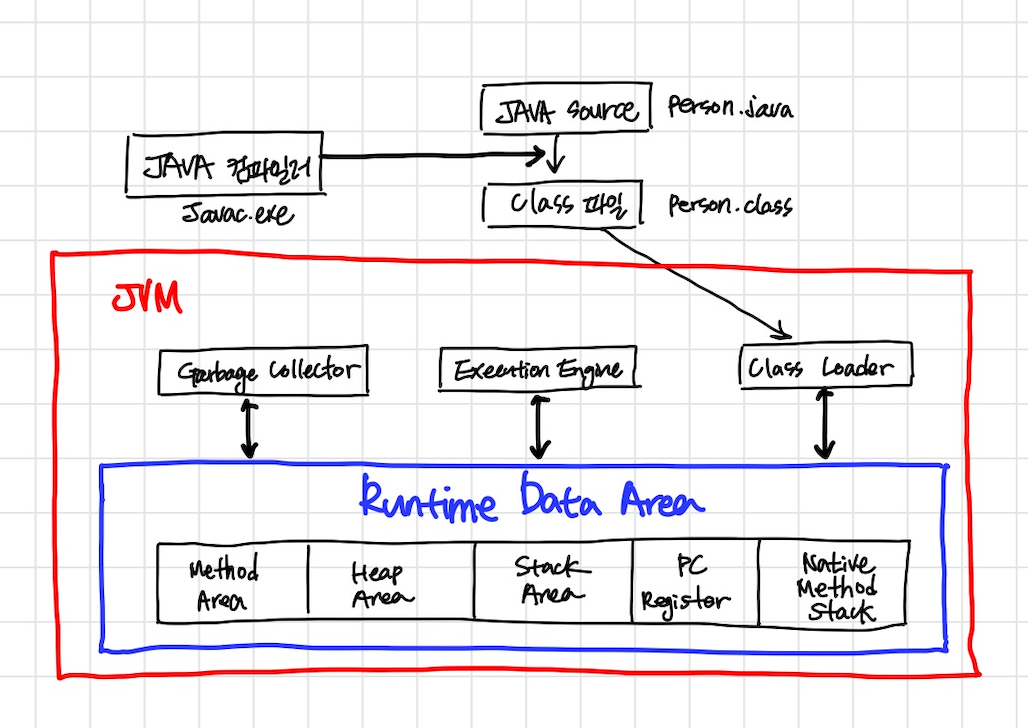 JAVA Source
Person.java
JAVA 컴파일러
Javac.exe
Class 파일
Person.class
JVM
Garbage Collector
Execution Engine
Class Loader
Runtime Data Area
Method
Area
Heap
Area
Stack
Area
PC
Register
Native
Method
Stack